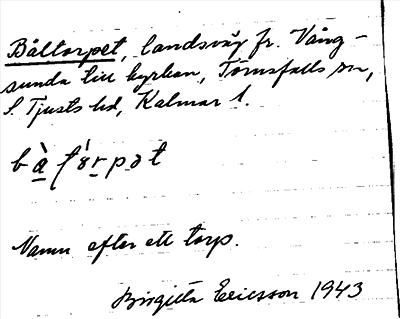 Båltorpet, landsväg fr. Vång-
sunda till kyrkan, Törnsfalls sn,
S. Tjusts hd, Kalmar l.
Namn efter ett torp.
Birgitta Ericsson 1943